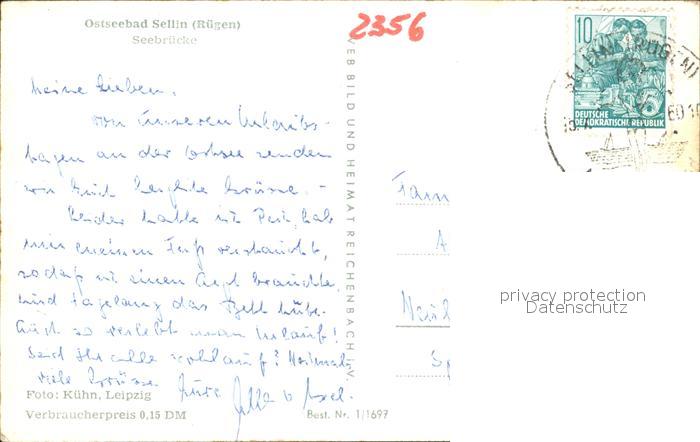 Ostseebad Sellin (Rügen)
Seebrücke
2356
10
DEUTSCHE
DEMOKRATISCHE REPUBLIK
SELLIN (RÜGEN)
60
Meine Lieben,
von unseren Urlaubs-
tagen an der Ostsee senden
wir Euch herzliche Grüsse. -
Leider hatte ich Pech, hab
mir meinen Fuß verstaucht,
sodaß ich einen Arzt brauchte
und tagelang das Bett hüte.
Auch so verlebt man Urlaub!
Seid Ihr alle wohlauf? Nochmals
viele Grüsse Eure
Foto: Kühn, Leipzig
Verbraucherpreis 0,15 DM
Best. Nr. 1/1697
VEB BILD UND HEIMAT REICHENBACH I. V.
Fam
privacy protection
Datenschutz